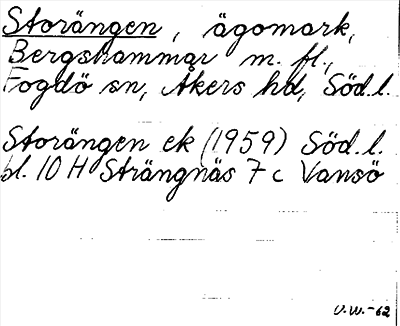 Storängen, ägomark,
Bergshammar m. fl.,
Fogdö sn, Åkers hd, Söd.l.
Storängen ek (1959) Söd.l.
bl. 10 H Strängnäs 7 c Vansö
U.W.-62